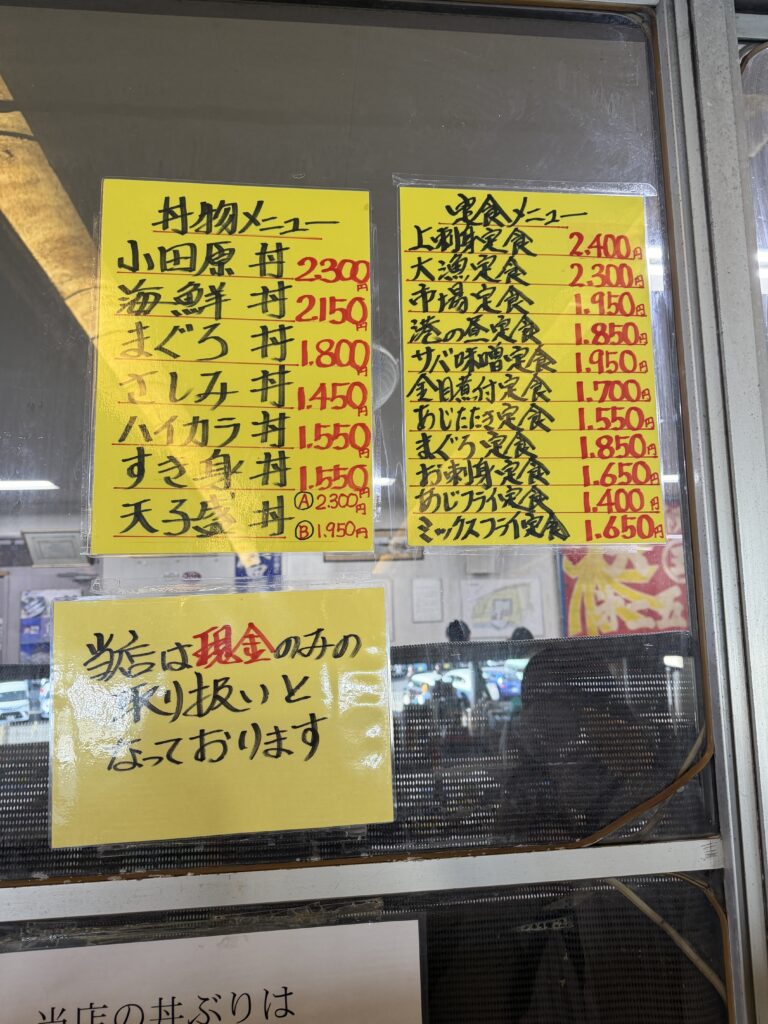 丼物メニュー
小田原 丼 2.300円
海鮮 丼 2.150円
まぐろ 丼 1.800円
さしみ 丼 1.450円
ハイカラ 丼 1.550円
すき身 丼 1.550円
天子盛 丼 Ⓐ 2.300円
Ⓑ 1.950円
定食メニュー
上刺身定食 2.400円
大漁定食 2.300円
市場定食 1.950円
港の昼定食 1.850円
サバ味噌定食 1.950円
金目煮付定食 1.700円
あじたたき定食 1.550円
まぐろ定食 1.850円
お刺身定食 1.650円
あじフライ定食 1.400円
ミックスフライ定食 1.650円
当店は現金のみの
取り扱いと
なっております
当店の丼ぶりは